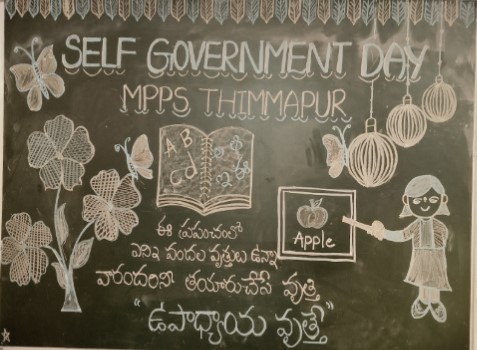 SELF GOVERNMENT DAY
MPPS THIMMAPUR
A B
C d
అ ఆ
ఇ ఈ
Apple
ఈ ప్రపంచంలో
ఎన్ని వందల వృత్తులు ఉన్నా
వారందరిని తయారుచేసే వృత్తి
"ఉపాధ్యాయ వృత్తే"